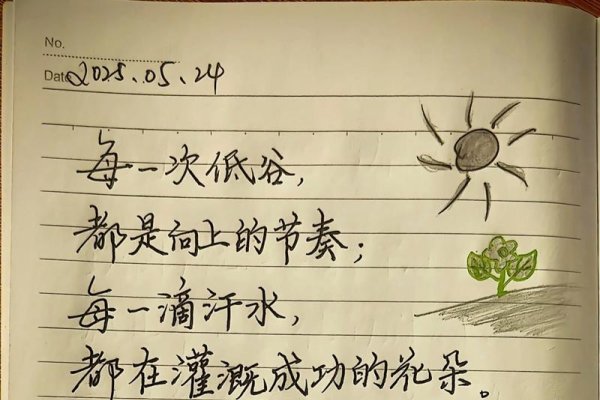 No.
Date 2025.05.24
每一次低谷,
都是向上的节奏;
每一滴汗水,
都在灌溉成功的花朵。